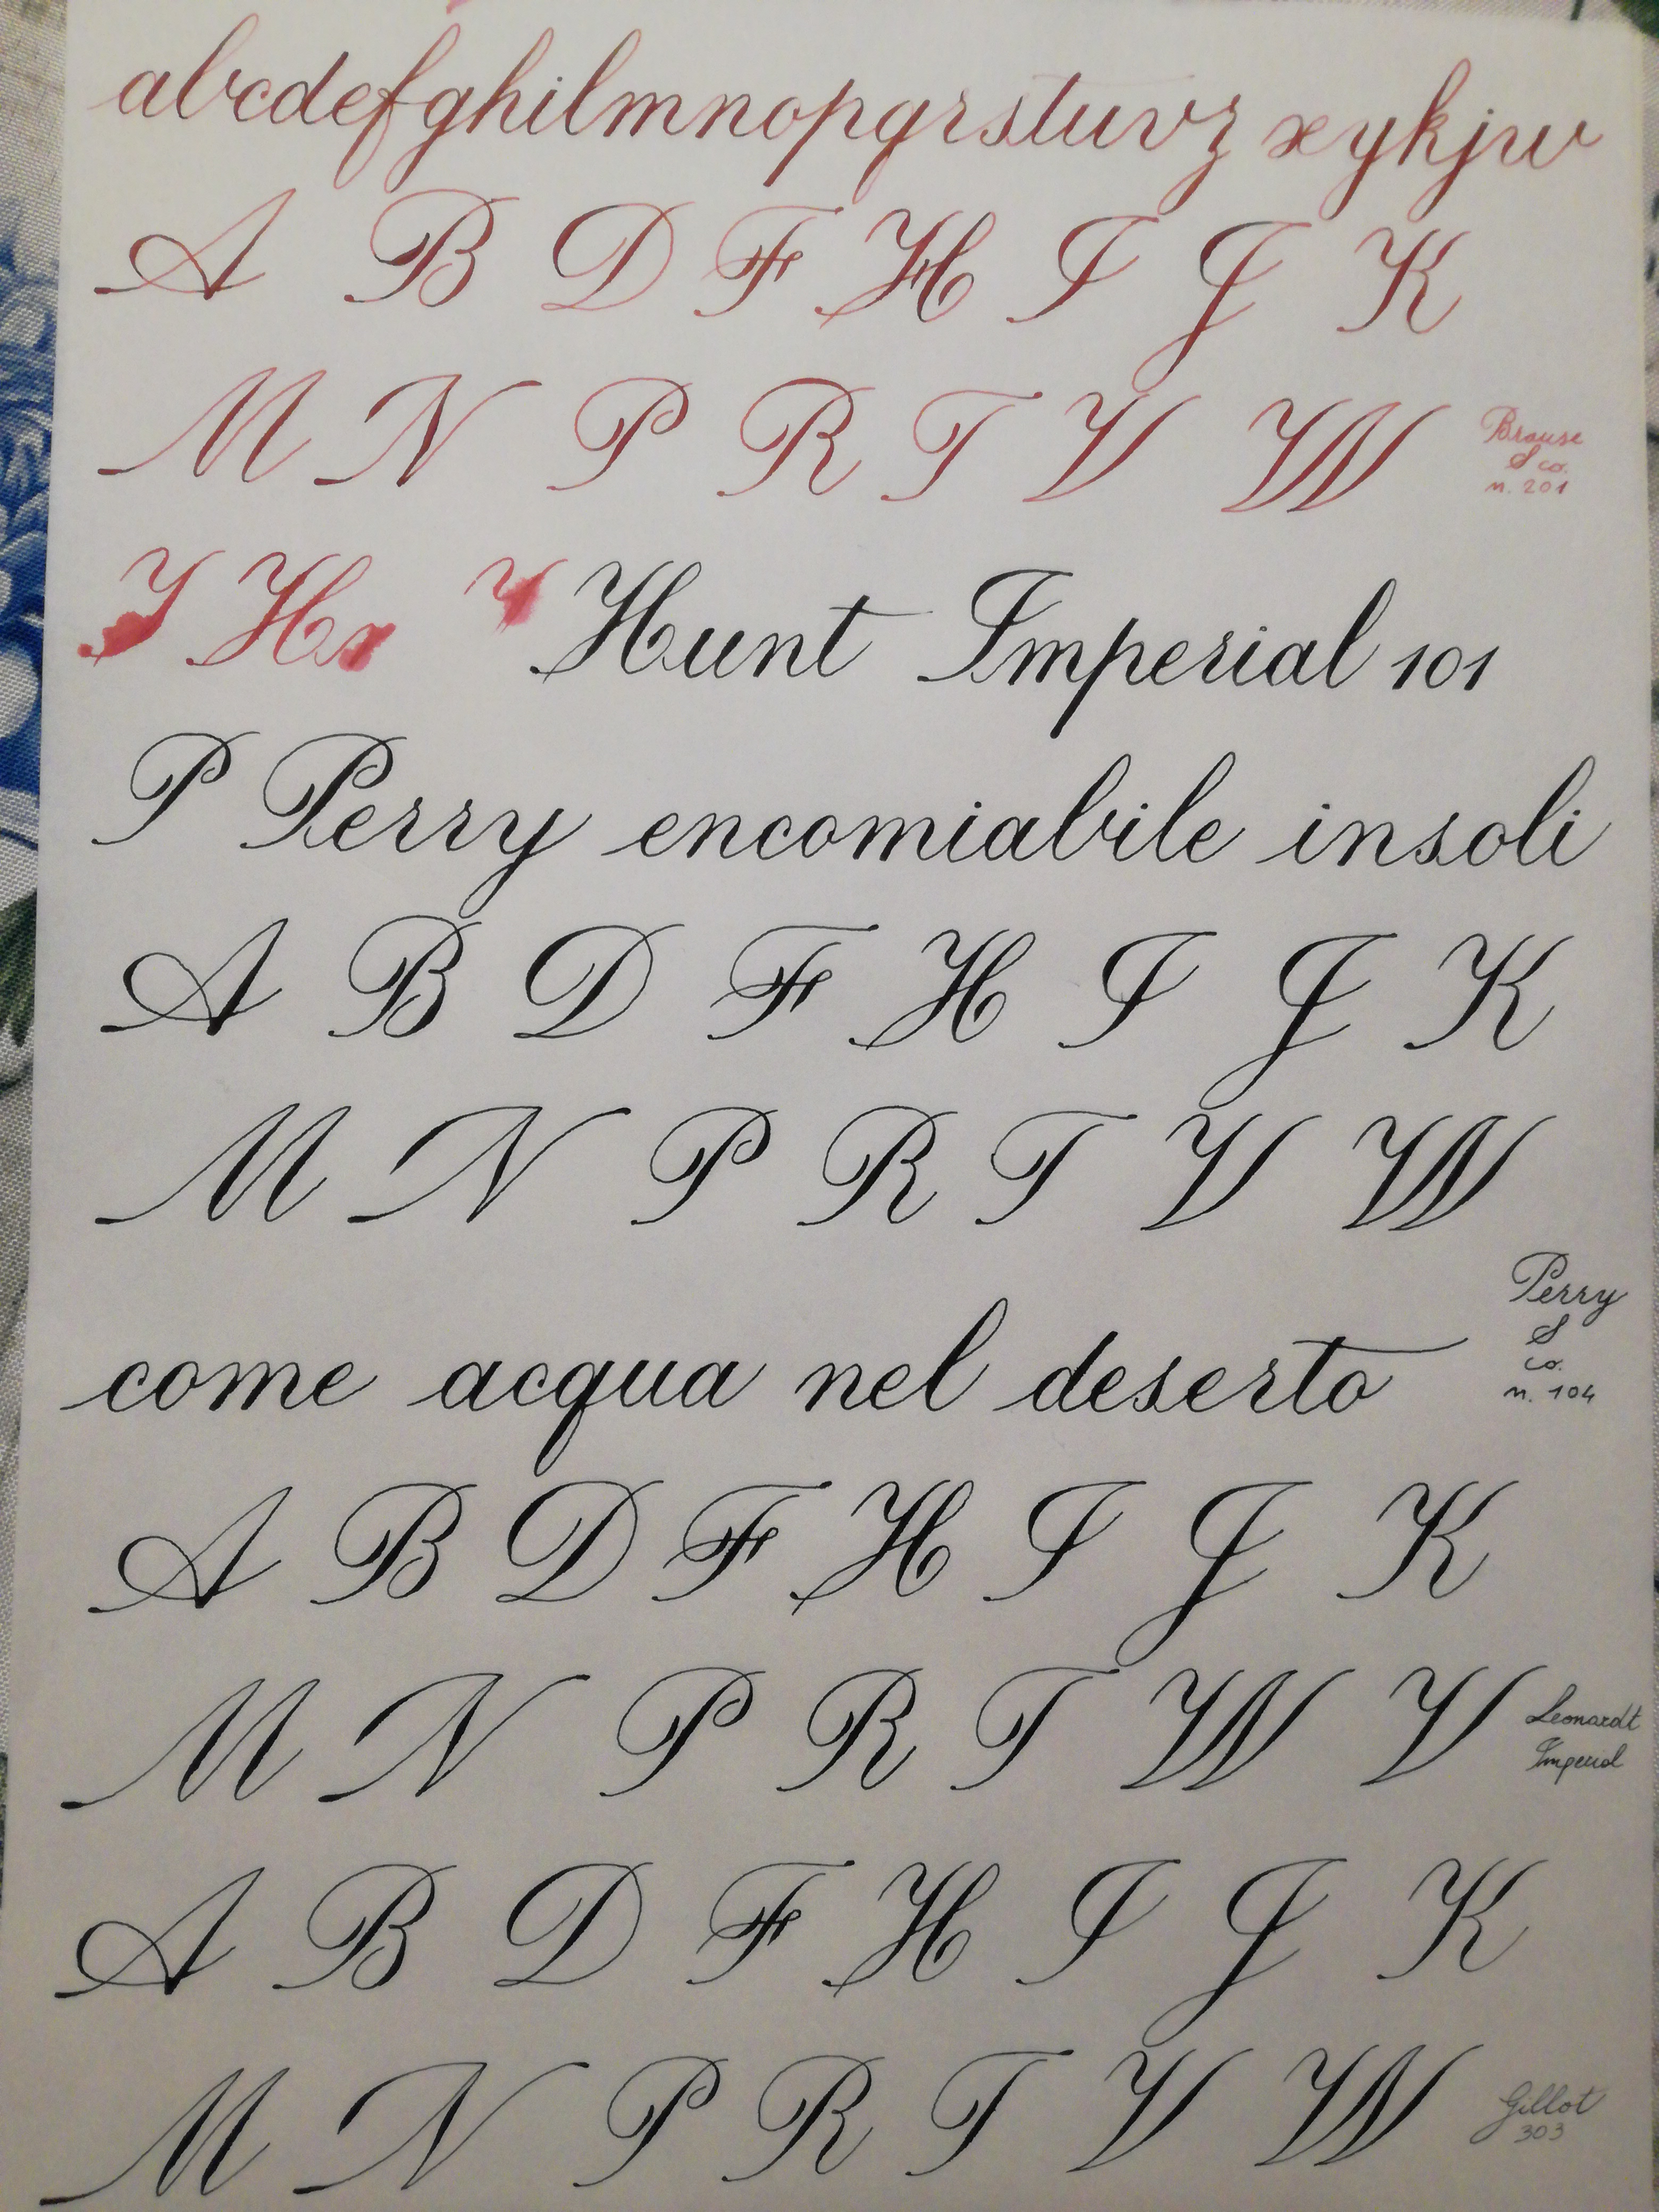 abcdefghilmnopqrstuvz xykjw
A B D F H I J K
M N P R T V W
Brause
& co.
n. 201
Y H x Y Hunt Imperial 101
P Perry encomiabile insoli
A B D F H I J K
M N P R T V W
Perry
&
co.
n. 104
come acqua nel deserto
A B D F H I J K
M N P R T W V
Leonardt
Imperial
A B D F H I J K
M N P R T V W
Gillot
303